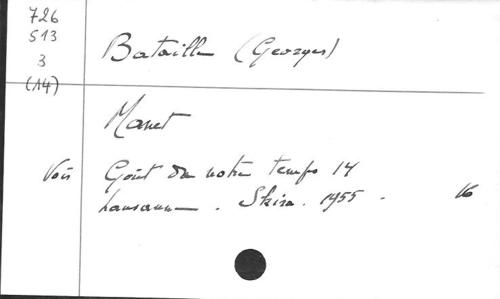 726
513
3
(14)
Bataille (Georges)
Manet
Voir Goût de notre temps 14
Lausanne. Skira. 1955. 16